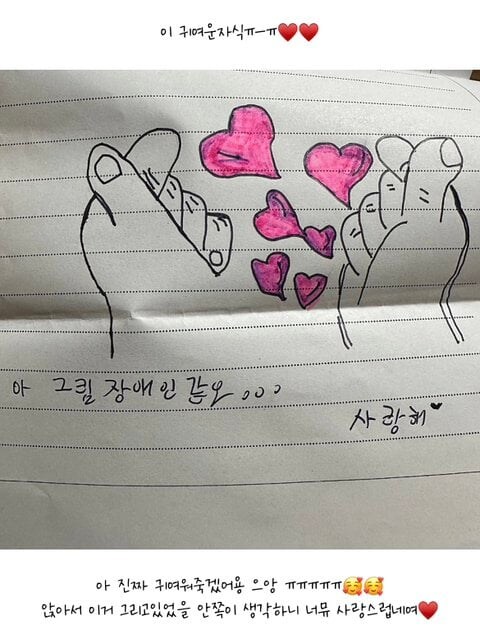 이 귀여운자식ㅠㅡㅠ♥️♥️
아 그림 장애인 같오...
사랑해♥
아 진짜 귀여워죽겠어용 으앙 ㅠㅠㅠㅠㅠ🥰🥰
앉아서 이거 그리고있었을 안쪽이 생각하니 너뮤 사랑스럽네여♥️